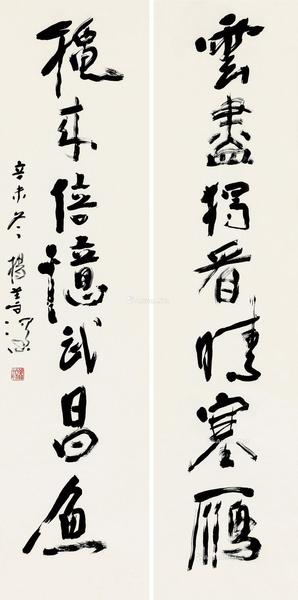 雲盡獨看晴塞雁
穐來倍憶武昌魚
辛未冬楊善深